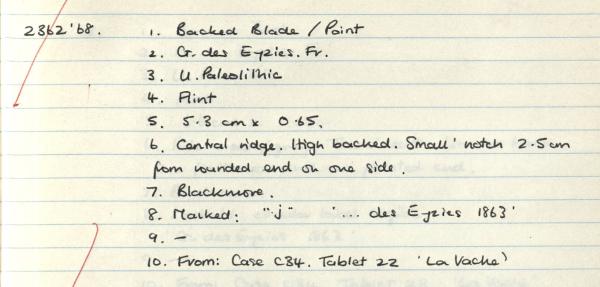 2362'68. 1. Backed Blade / Point
2. Gr. des Eyzies. Fr.
3. U. Paleolithic
4. Flint
5. 5.3 cm x 0.65.
6. Central ridge. High backed. Small notch 2.5cm
from rounded end on one side.
7. Blackmore.
8. Marked: "j" '... des Eyzies 1863'
9. –
10. From: Case C34. Tablet 22 'La Vache'